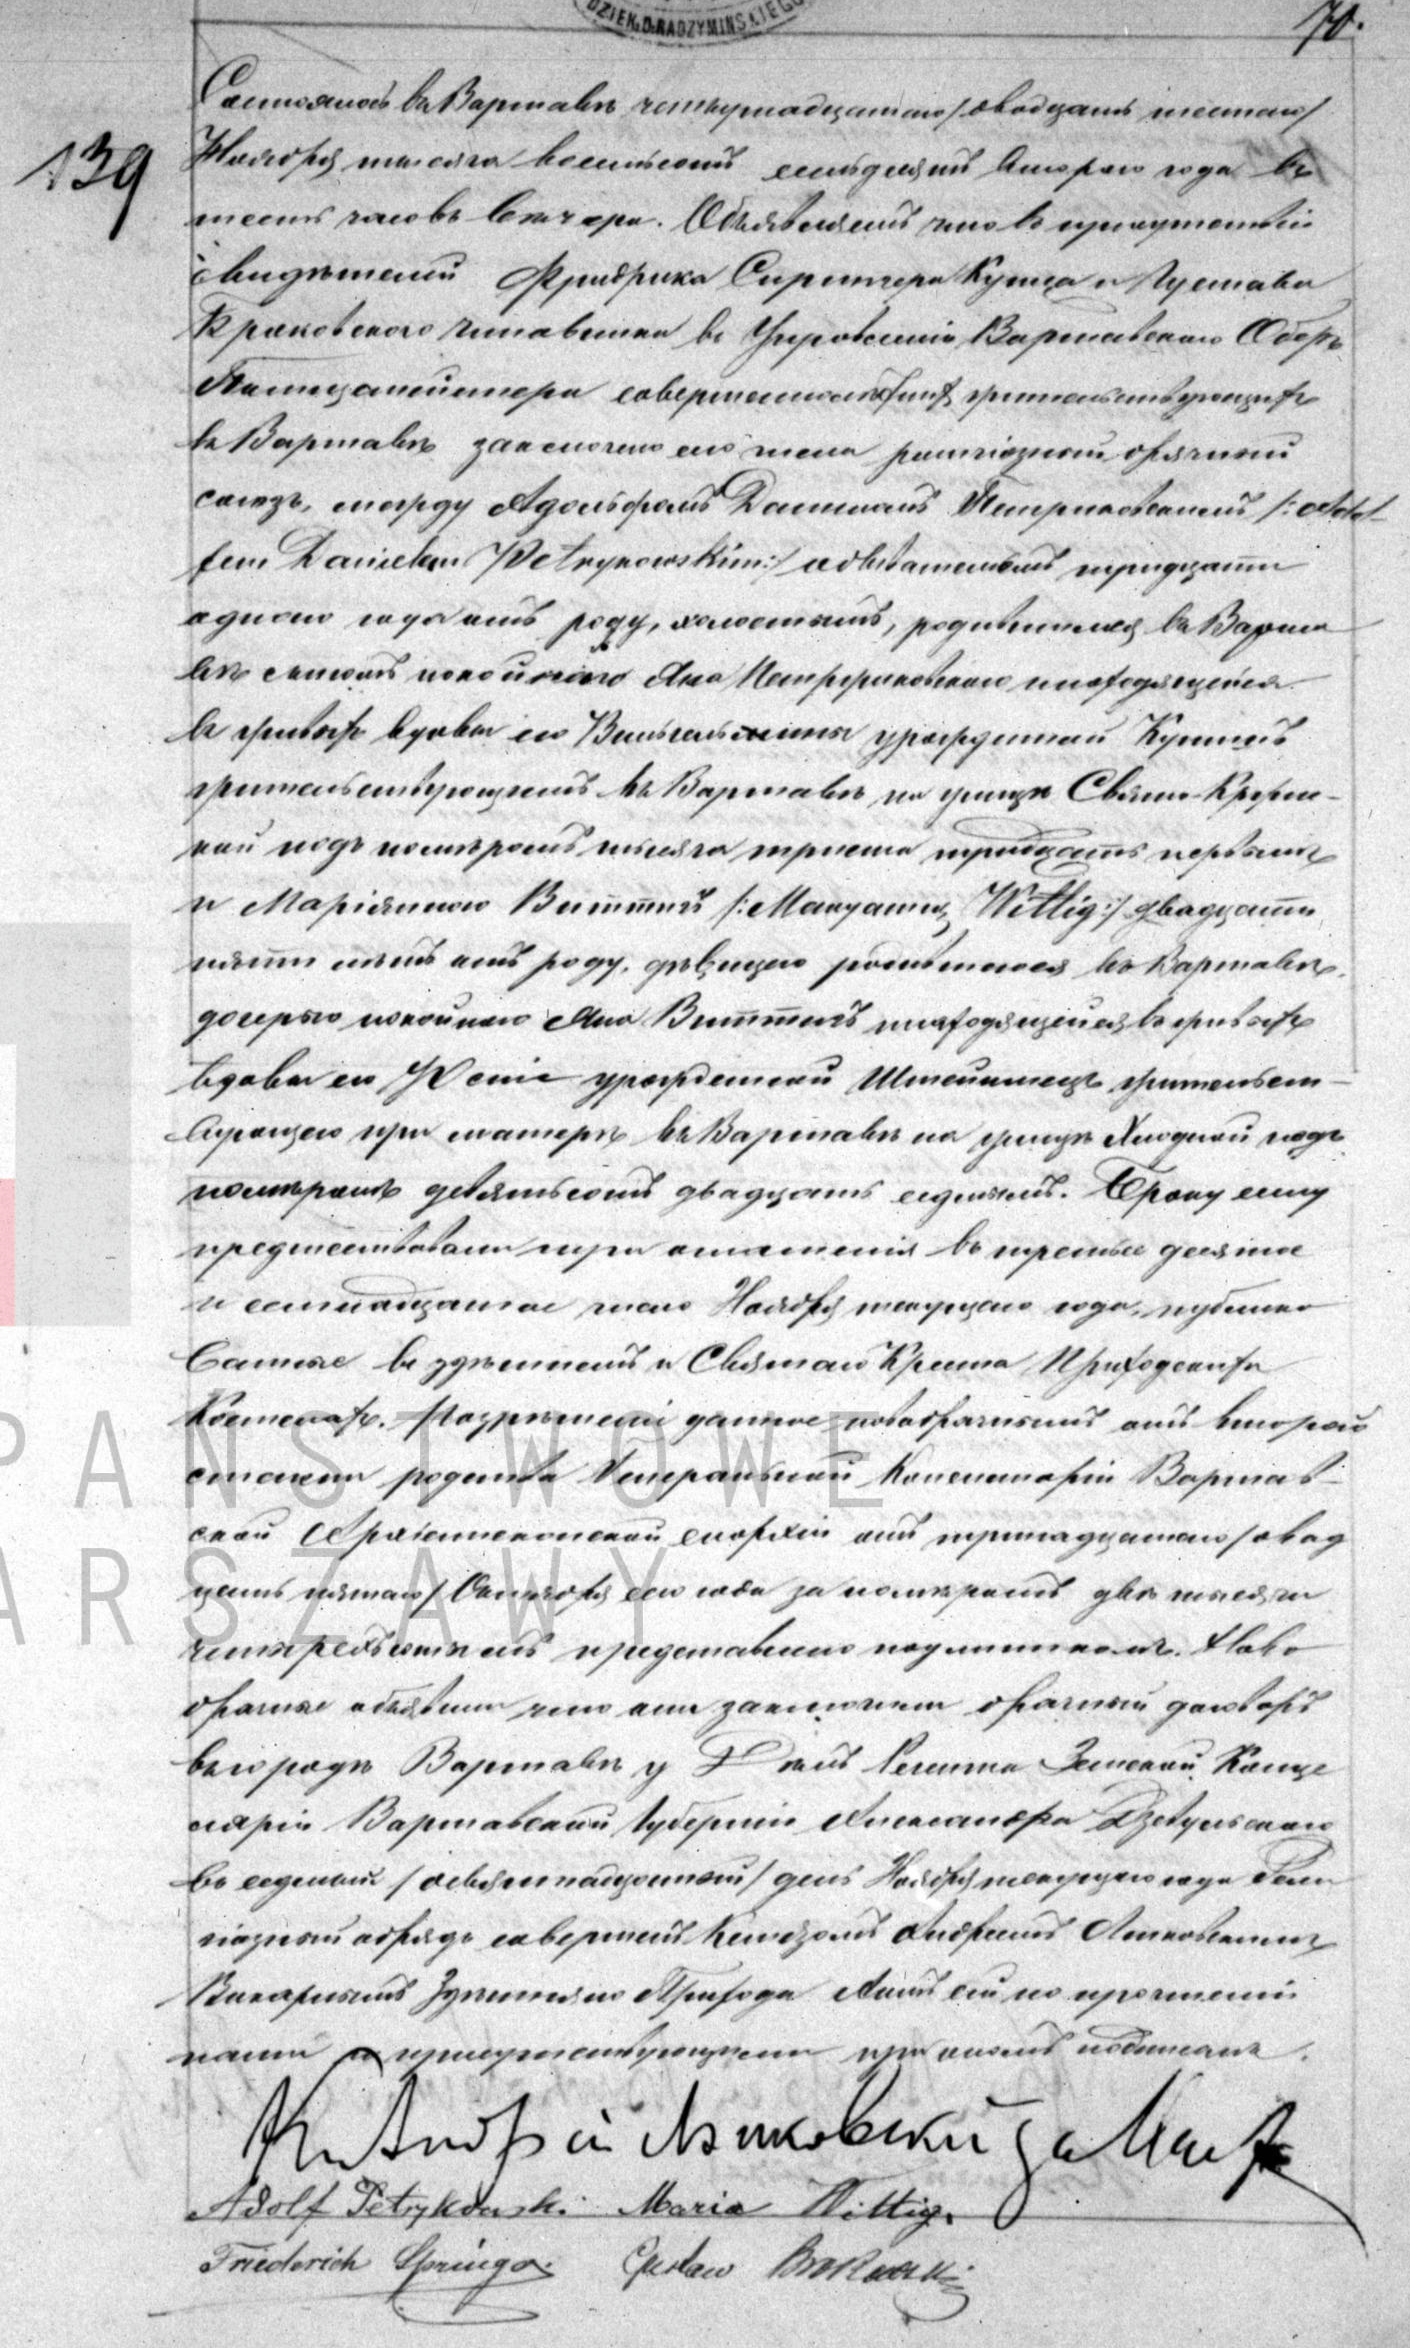 DZIEK.D.RADZYMIŃSKIEGO
70.
139
Состоялось въ Варшавѣ четырнадцатаго /двадцать шестаго/
Ноября тысяча восемьсотъ семьдесятъ втораго года въ
шесть часовъ вечера. Объявляемъ что въ присутствіи
свидѣтелей Фридриха Шпрингера Купца и Густава
чиновника въ Управленіи Варшавскаго Оберъ
Полицеймейстера совершеннолѣтнихъ жительствующихъ
въ Варшавѣ заключенъ сего числа религіозный брачный
союзъ, между Адольфомъ Даніиломъ Петрыковскимъ /:Adol-
fem Danielem Petrykowskim:/ тридцати
одного года отъ роду, холостымъ, родившимся въ Варша
вѣ сыномъ покойнаго Яна Петрыковскаго и находящейся
въ живыхъ вдовы его Вильгельмины урожденной
жительствующимъ въ Варшавѣ на улицѣ Свенто-Крыж-
ской подъ номеромъ тысяча триста тридцать первымъ
и Маріянною Виттигъ /:Maryanną Wittig:/ двадцати
пяти лѣтъ отъ роду, дѣвицею родившеюся въ Варшавѣ
дочерью покойнаго Яна Виттигъ и находящейся въ живыхъ
вдовы его урожденной жительст-
вующею при матери въ Варшавѣ на улицѣ Хлодной подъ
номеромъ девятьсотъ двадцать седьмымъ. Браку сему
предшествовали три оглашенія въ третье десятое
и семнадцатое число Ноября текущаго года, публико
ванные въ здѣшнемъ и Святаго Креста Приходскихъ
Костелахъ. Разрѣшеніе данное новобрачнымъ отъ второй
степени родства Генеральной Консисторіи Варшав-
ской Архіепископской епархіи отъ тринадцатаго /двад
цать пятаго/ Октября сего года за номеромъ двѣ тысячи
представлено подлинникомъ. Ново
брачные объявили что они заключили брачный договоръ
въ городѣ Варшавѣ у Регента Земской Канце
ляріи Варшавской Губерніи Александра
въ седьмый /девятнадцатый/ день Ноября текущаго года Рели
гіозный обрядъ совершенъ Ксендзомъ Андреемъ
Викаріемъ Здѣшняго Прихода Актъ сей по прочтеніи
нами и присутствующими при ономъ подписанъ.
Adolf Petrykowski. Maria Wittig.
Friederich Springer. Gustaw